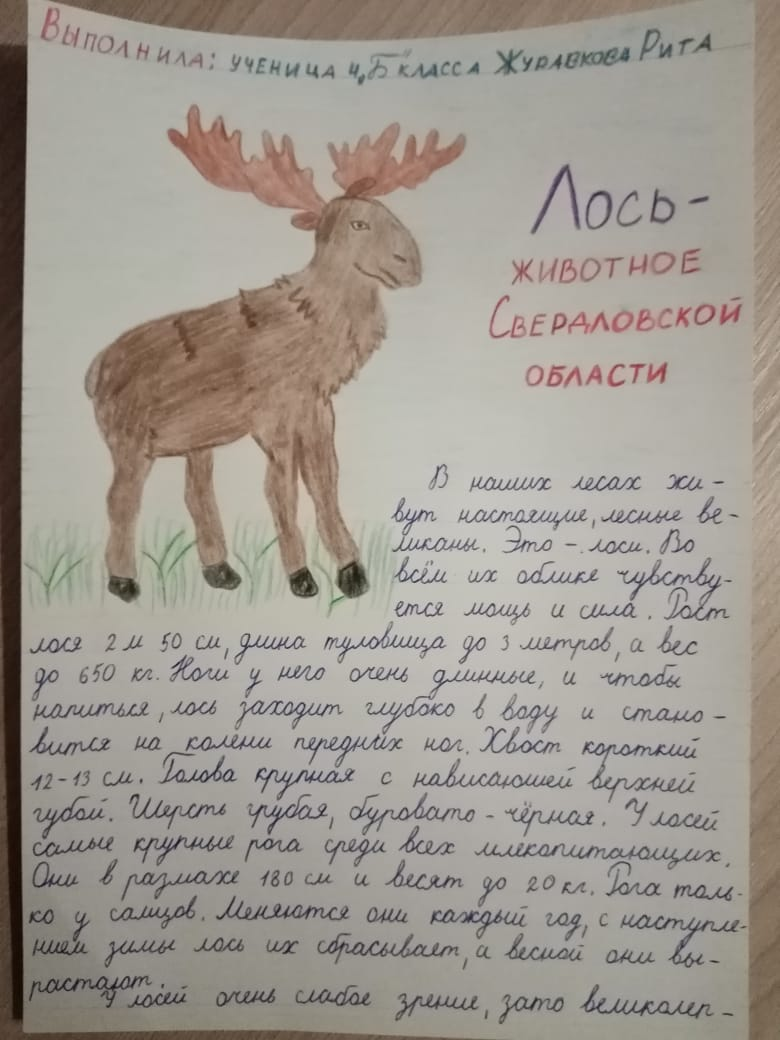 Выполнила: ученица 4 „Б" класса Журавкова Рита
Лось-
животное
Свердловской
области
В наших лесах жи-
вут настоящие, лесные ве-
ликаны. Это - лоси. Во
всём их облике чувству-
ется мощь и сила. Рост
лося 2 м 50 см, длина туловища до 3 метров, а вес
до 650 кг. Ноги у него очень длинные, и чтобы
напиться, лось заходит глубоко в воду и стано-
вится на колени передних ног. Хвост короткий
12-13 см. Голова крупная с нависающей верхней
губой. Шерсть грубая, буровато - чёрная. У лосей
самые крупные рога среди всех млекопитающих.
Они в размахе 180 см и весят до 20 кг. Рога толь-
ко у самцов. Меняются они каждый год, с наступле-
нием зимы лось их сбрасывает, а весной они вы-
растают.
У лосей очень слабое зрение, зато великолеп-